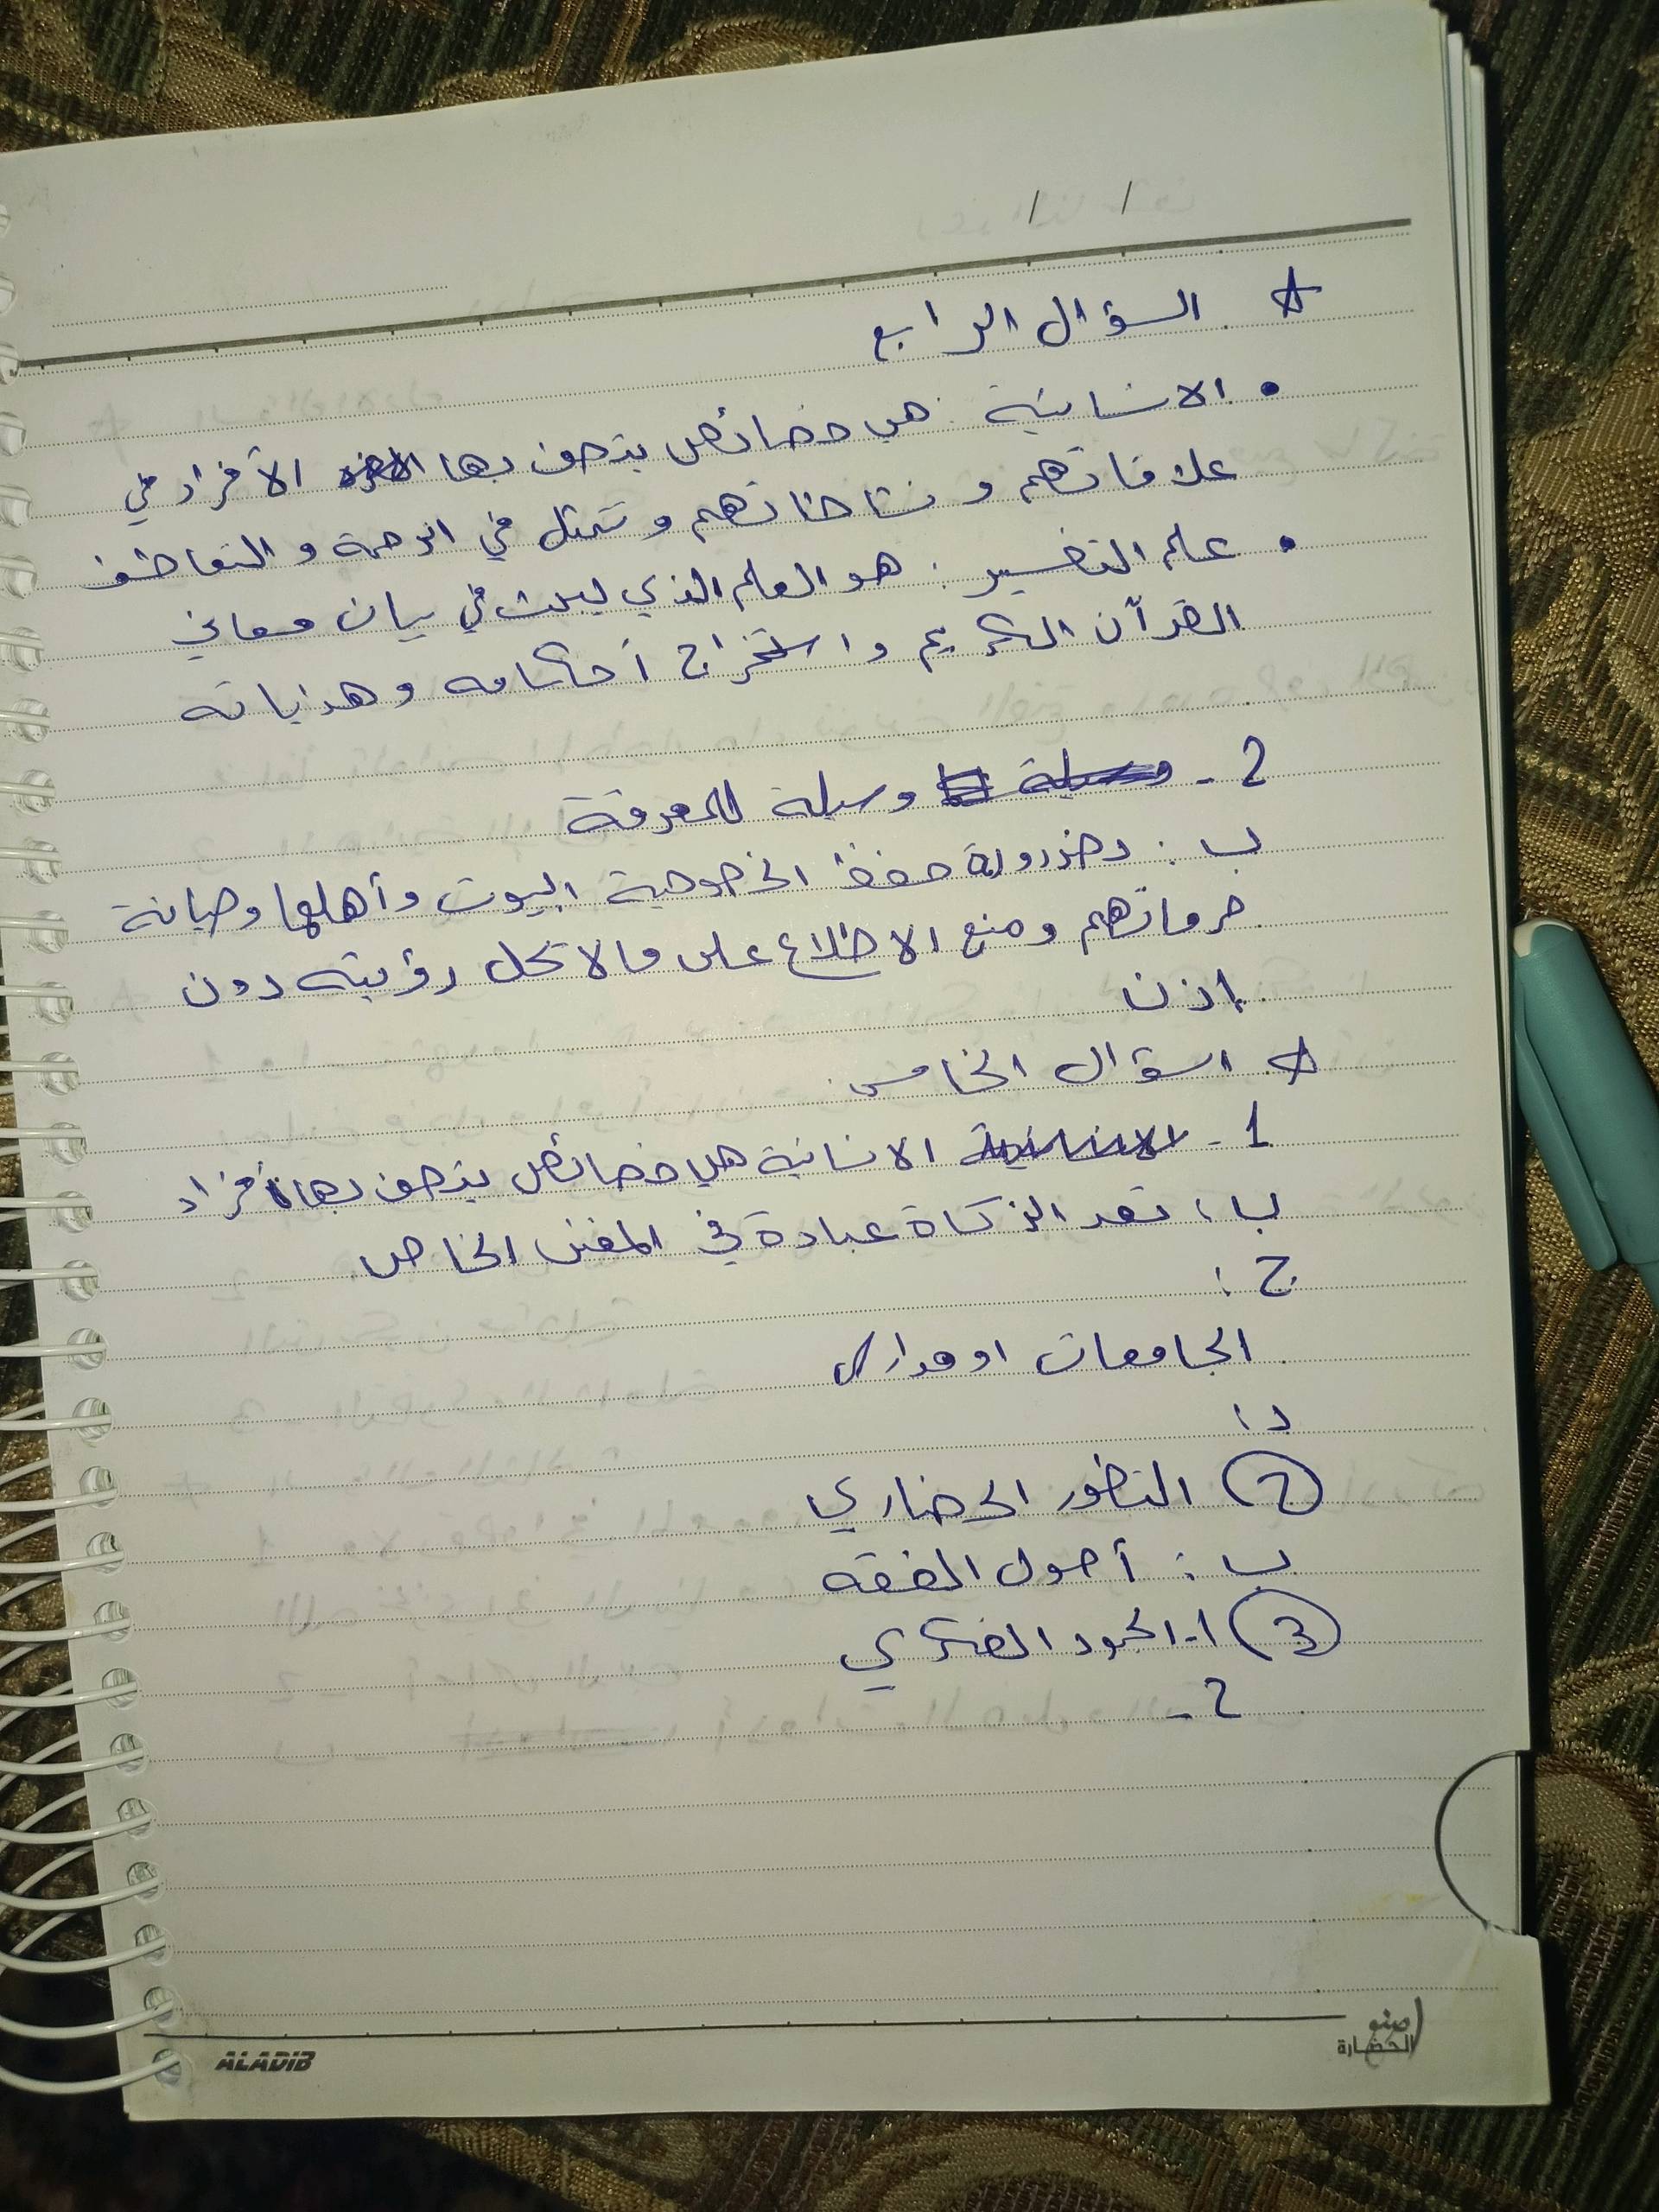 / /
السؤال الرابع
• الانسانية : هي خصائص يتصف بها الأفراد في
علاقاتهم و نشاطاتهم و تتمثل في الرحمة و التعاطف
• علم التفسير : هو العلم الذي يبحث في بيان معاني
القرآن الكريم واستخراج أحكامه وهداياته
2 - وسيلة للمعرفة
ب : وضرورة حفظ الخصوصية البيوت وأهلها وصيانة
حرماتهم ومنع الاطلاع على مالا تحل رؤيته دون
إذن
اسؤال الخامس
1 - الانسانية هي خصائص يتصف بها افراد
ب : تعد الزكاة عبادة في المعنى الخاص
ج :
الجامعات او مدارس
د :
2 التطور الحضاري
ب : أصول الفقه
3 1- الجمود الفكري
2 -
ALADIB
صنو
الحضارة